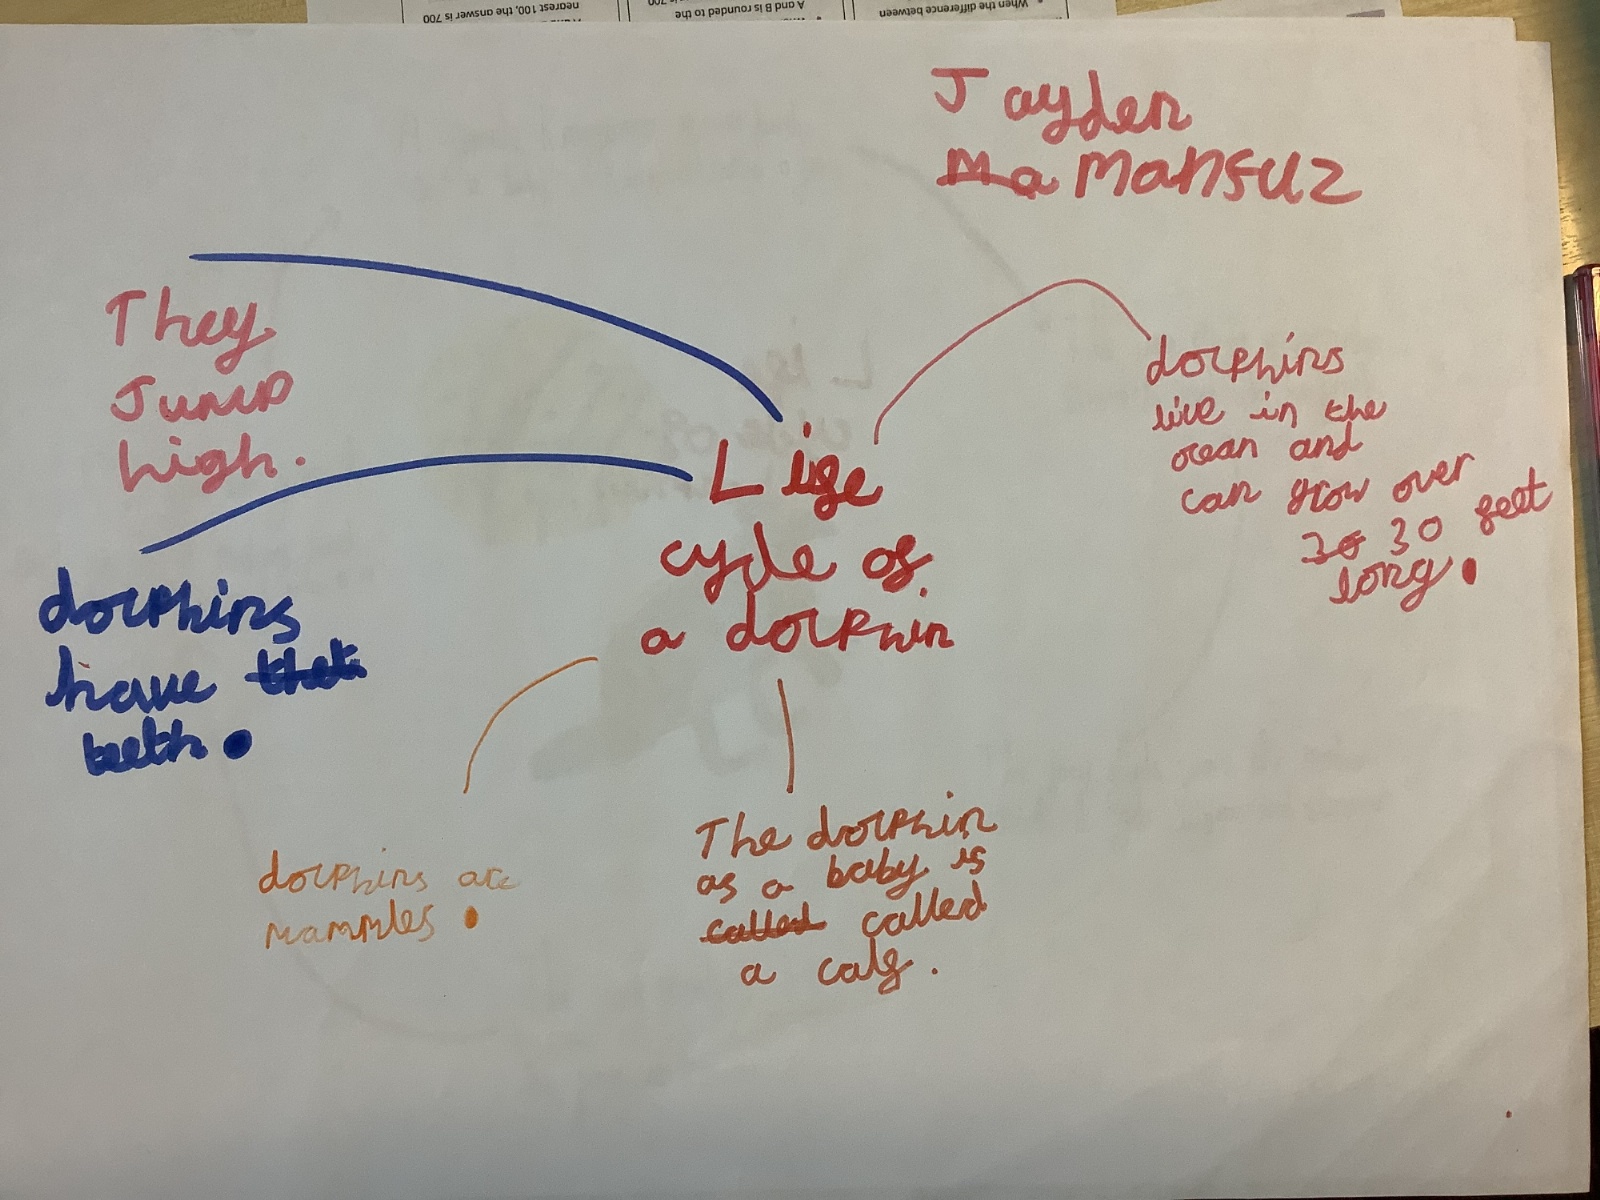 nearest 100, the answer is 700
A and B is rounded to the
When the difference between
Jayden
Ma Mansuz
They
Jump
high.
Life
cycle of
a dolphin
dolphins
live in the
ocean and
can grow over
30 30 feet
long.
dolphins
have thet
teeth.
dolphins are
mammles.
The dolphin
as a baby is
called called
a calf.